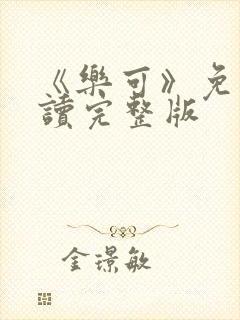 《樂可》免
讀完整版
金璟敏